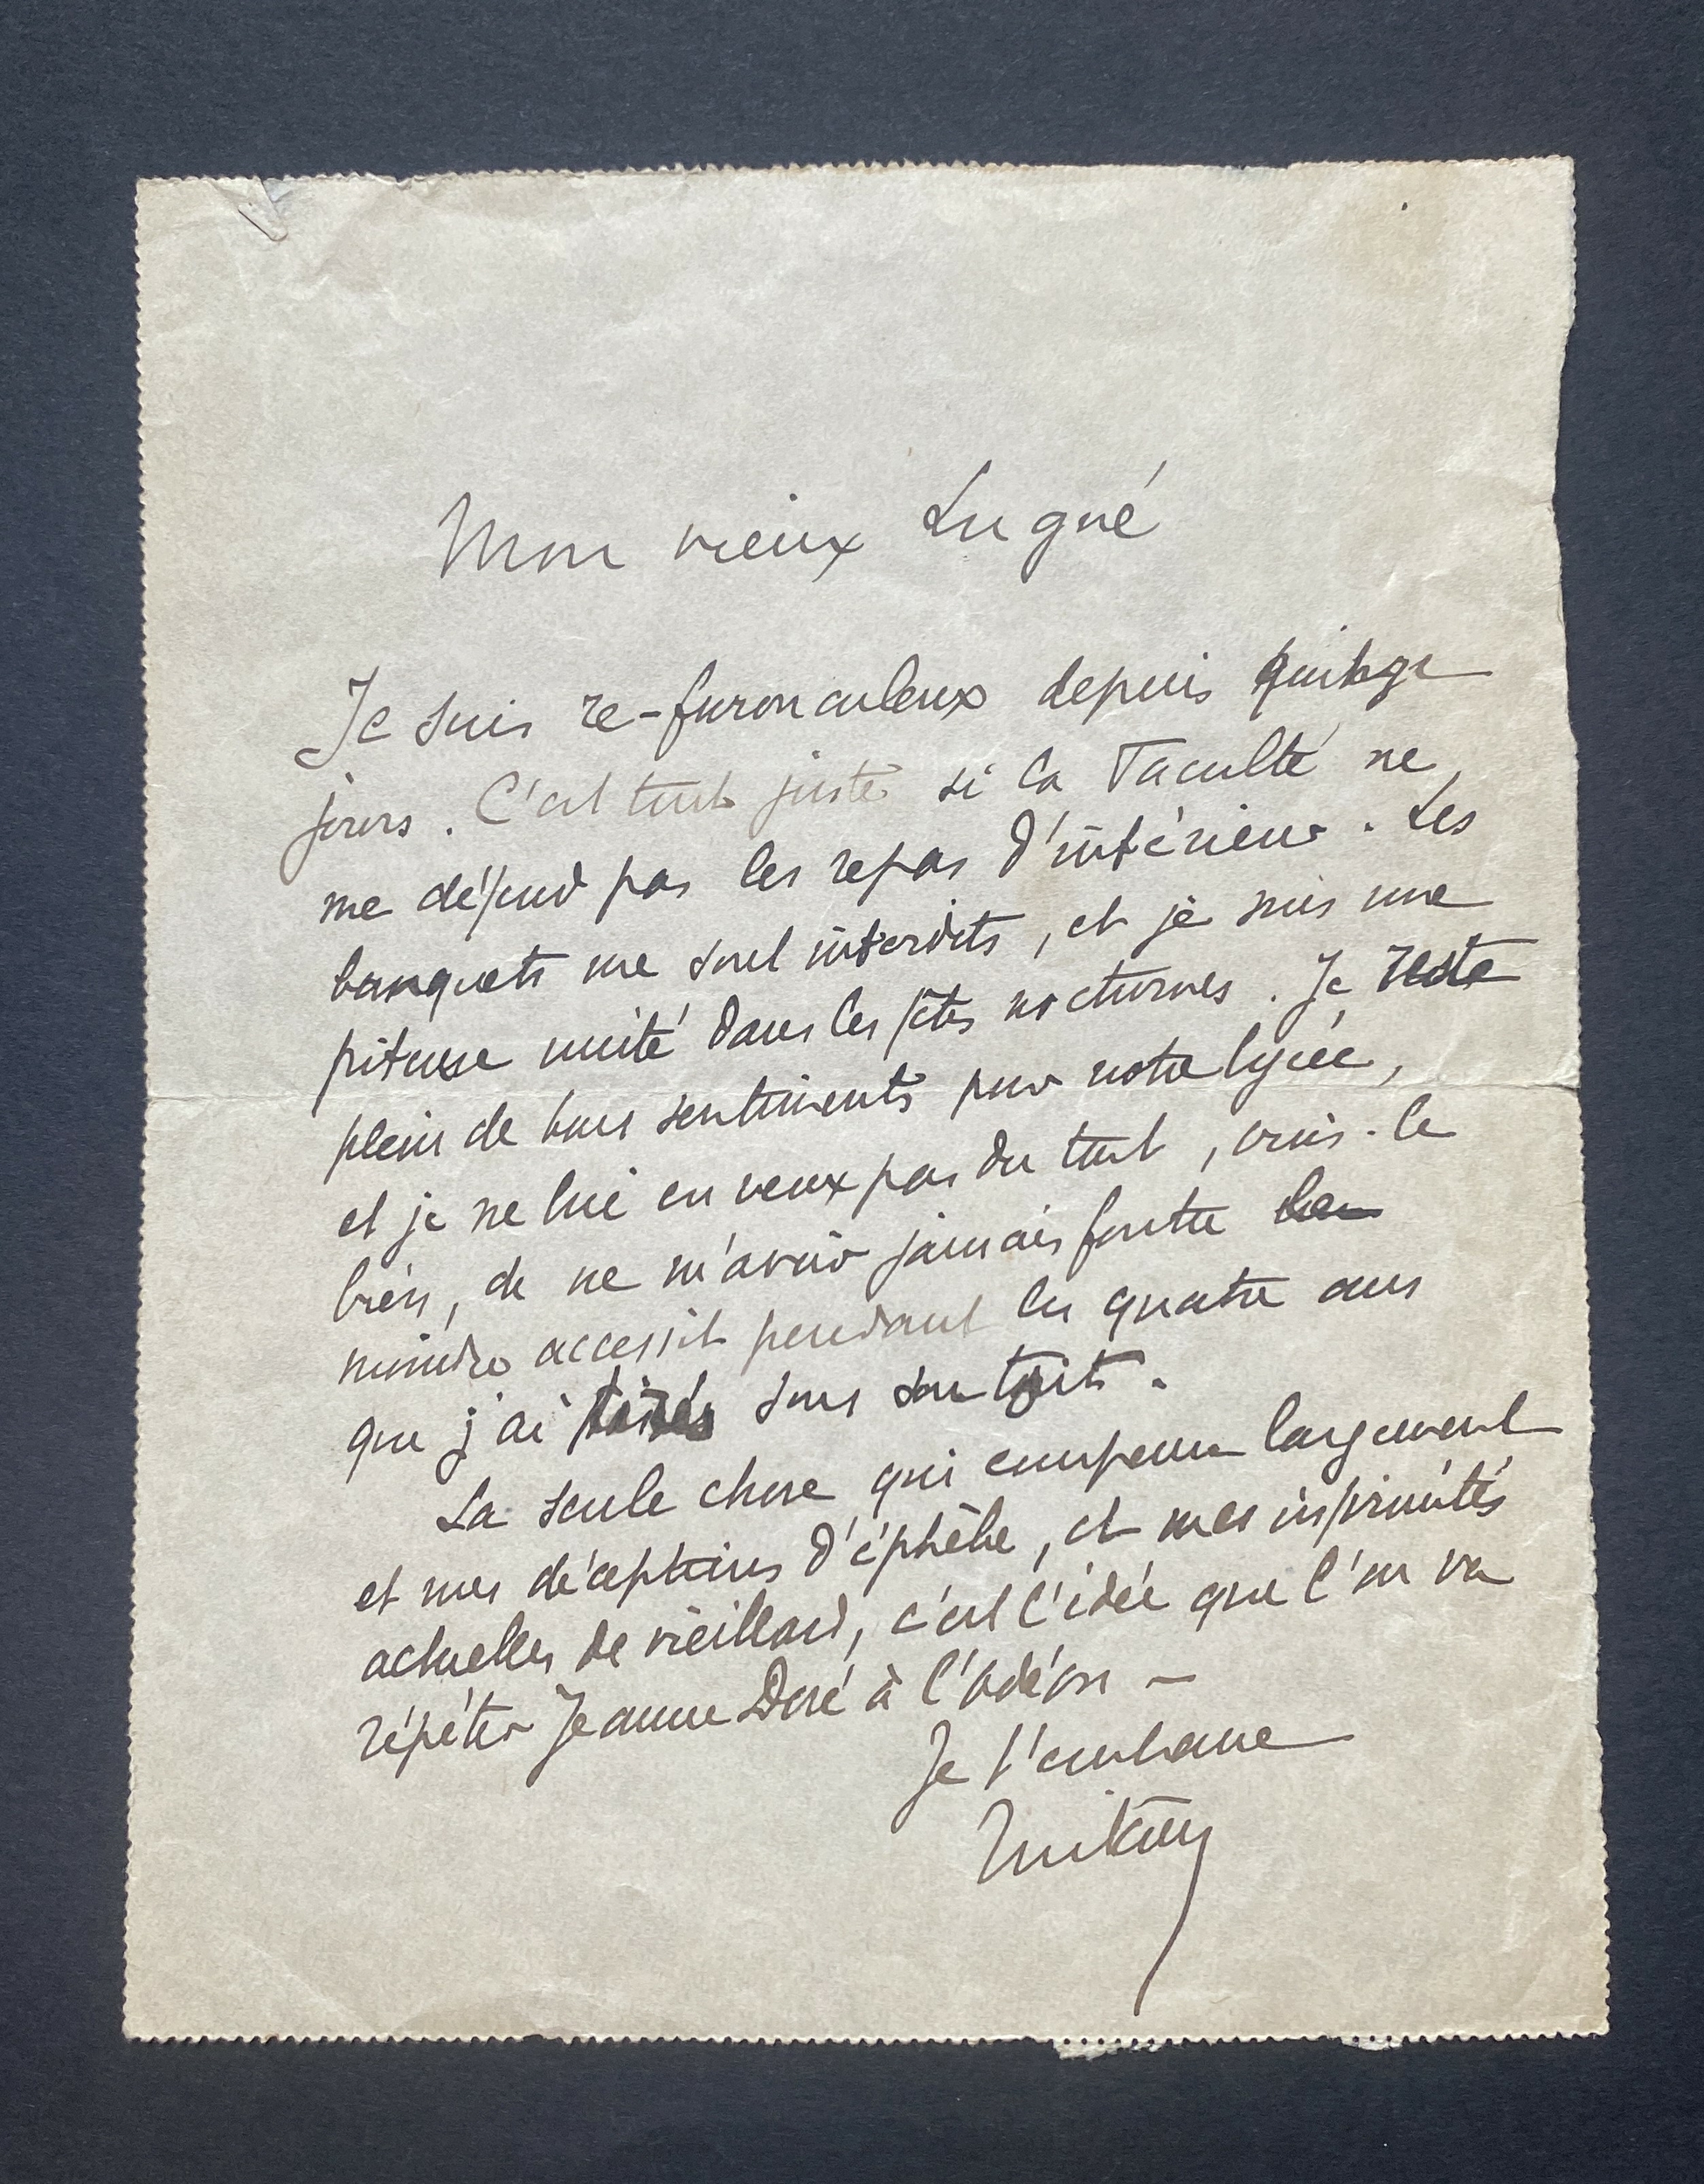 Mon vieux Lugné
Je suis re-furonculeux depuis quinze
jours. C'est tout juste si la Faculté ne
me défend pas les repas d'intérieur. Les
banquets me sont interdits, et je suis une
piteuse unité dans les fêtes nocturnes. Je reste
plein de bons sentiments pour notre lycée,
et je ne lui en veux pas du tout, crois-le
bien, de ne m'avoir jamais foutu le
moindre accessit pendant les quatre ans
que j'ai tirés sous son toit.
La seule chose qui compense largement
et mes déceptions d'éphèbe, et mes infirmités
actuelles de vieillard, c'est l'idée que l'on va
répéter Jeanne Doré à l'Odéon —
Je t'embrasse